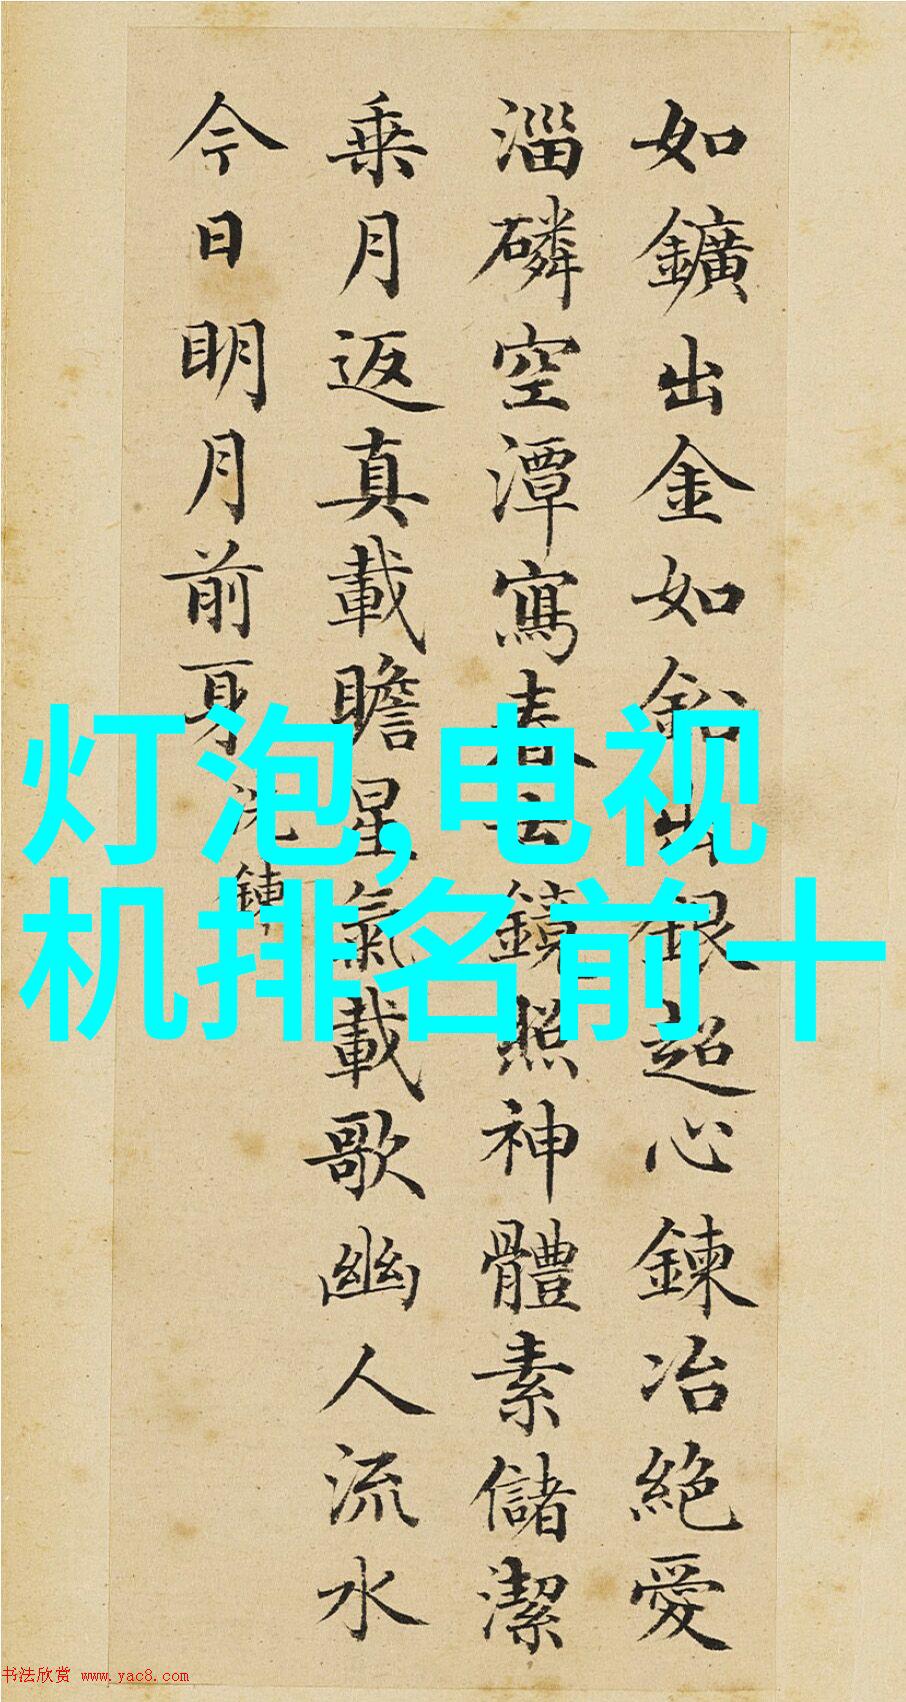 如鑛出金如鉛出銀超心鍊冶絕愛
淄磷空潭寫春古鏡照神體素儲潔
乘月返真載瞻星氣載歌幽人流水
今日明月前身洗鍊
灯泡,电视
机排名前十
书法欣赏 www.yac8.com